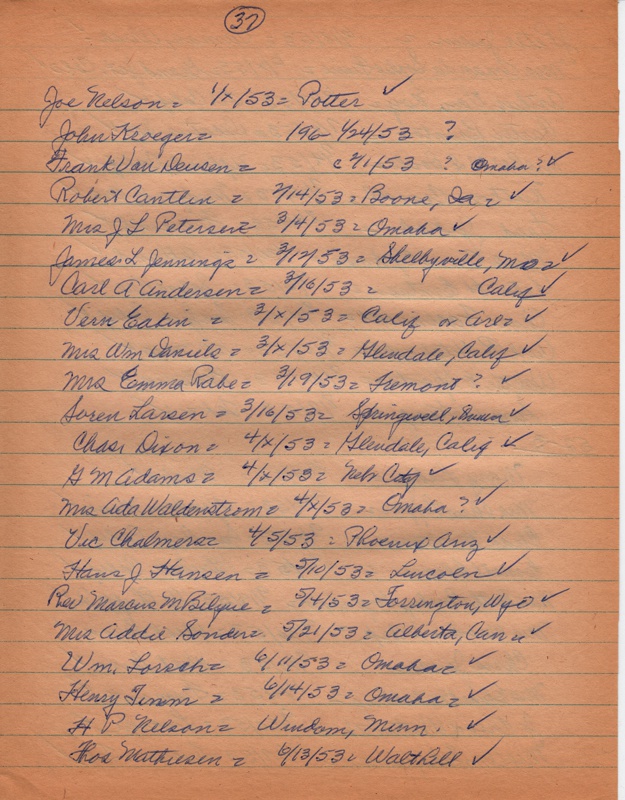 37
Joe Nelson = 1/x/53 = Potter ✓
John Kroeger = 196- 1/24/53 ?
Frank Van Deusen = c 2/1/53 ? Omaha ? ✓
Robert Cantlin = 2/14/53 = Boone, Ia = ✓
Mrs J L Petersen = 3/4/53 = Omaha ✓
James L Jennings = 3/12/53 = Shelbyville, Mo = ✓
Carl A Andersen = 3/16/53 = Calif ✓
Vern Eakin = 3/x/53 = Calif or Ariz ✓
Mrs Wm Daniels = 3/x/53 = Glendale, Calif ✓
Mrs Emma Rabe = 3/19/53 = Fremont ? ✓
Soren Larsen = 3/16/53 = ✓
Chas Dixon = 4/x/53 = Glendale, Calif ✓
G M Adams = 4/x/53 = Nebr City ✓
Mrs Ada Waldenstrom = 4/x/53 = Omaha ? ✓
Vic Chalmers = 4/5/53 = Phoenix Ariz ✓
Hans J Hansen = 5/10/53 = Lincoln ✓
Rev Marcus M = 5/4/53 = Torrington, Wyo ✓
Mrs Addie Sonder = 5/21/53 = Alberta, Can = ✓
Wm. Lorsch = 6/11/53 = Omaha = ✓
Henry Timm = 6/14/53 = Omaha = ✓
H P Nelson = Windom, Minn. ✓
Thos Mathiesen = 6/13/53 = Walthill ✓